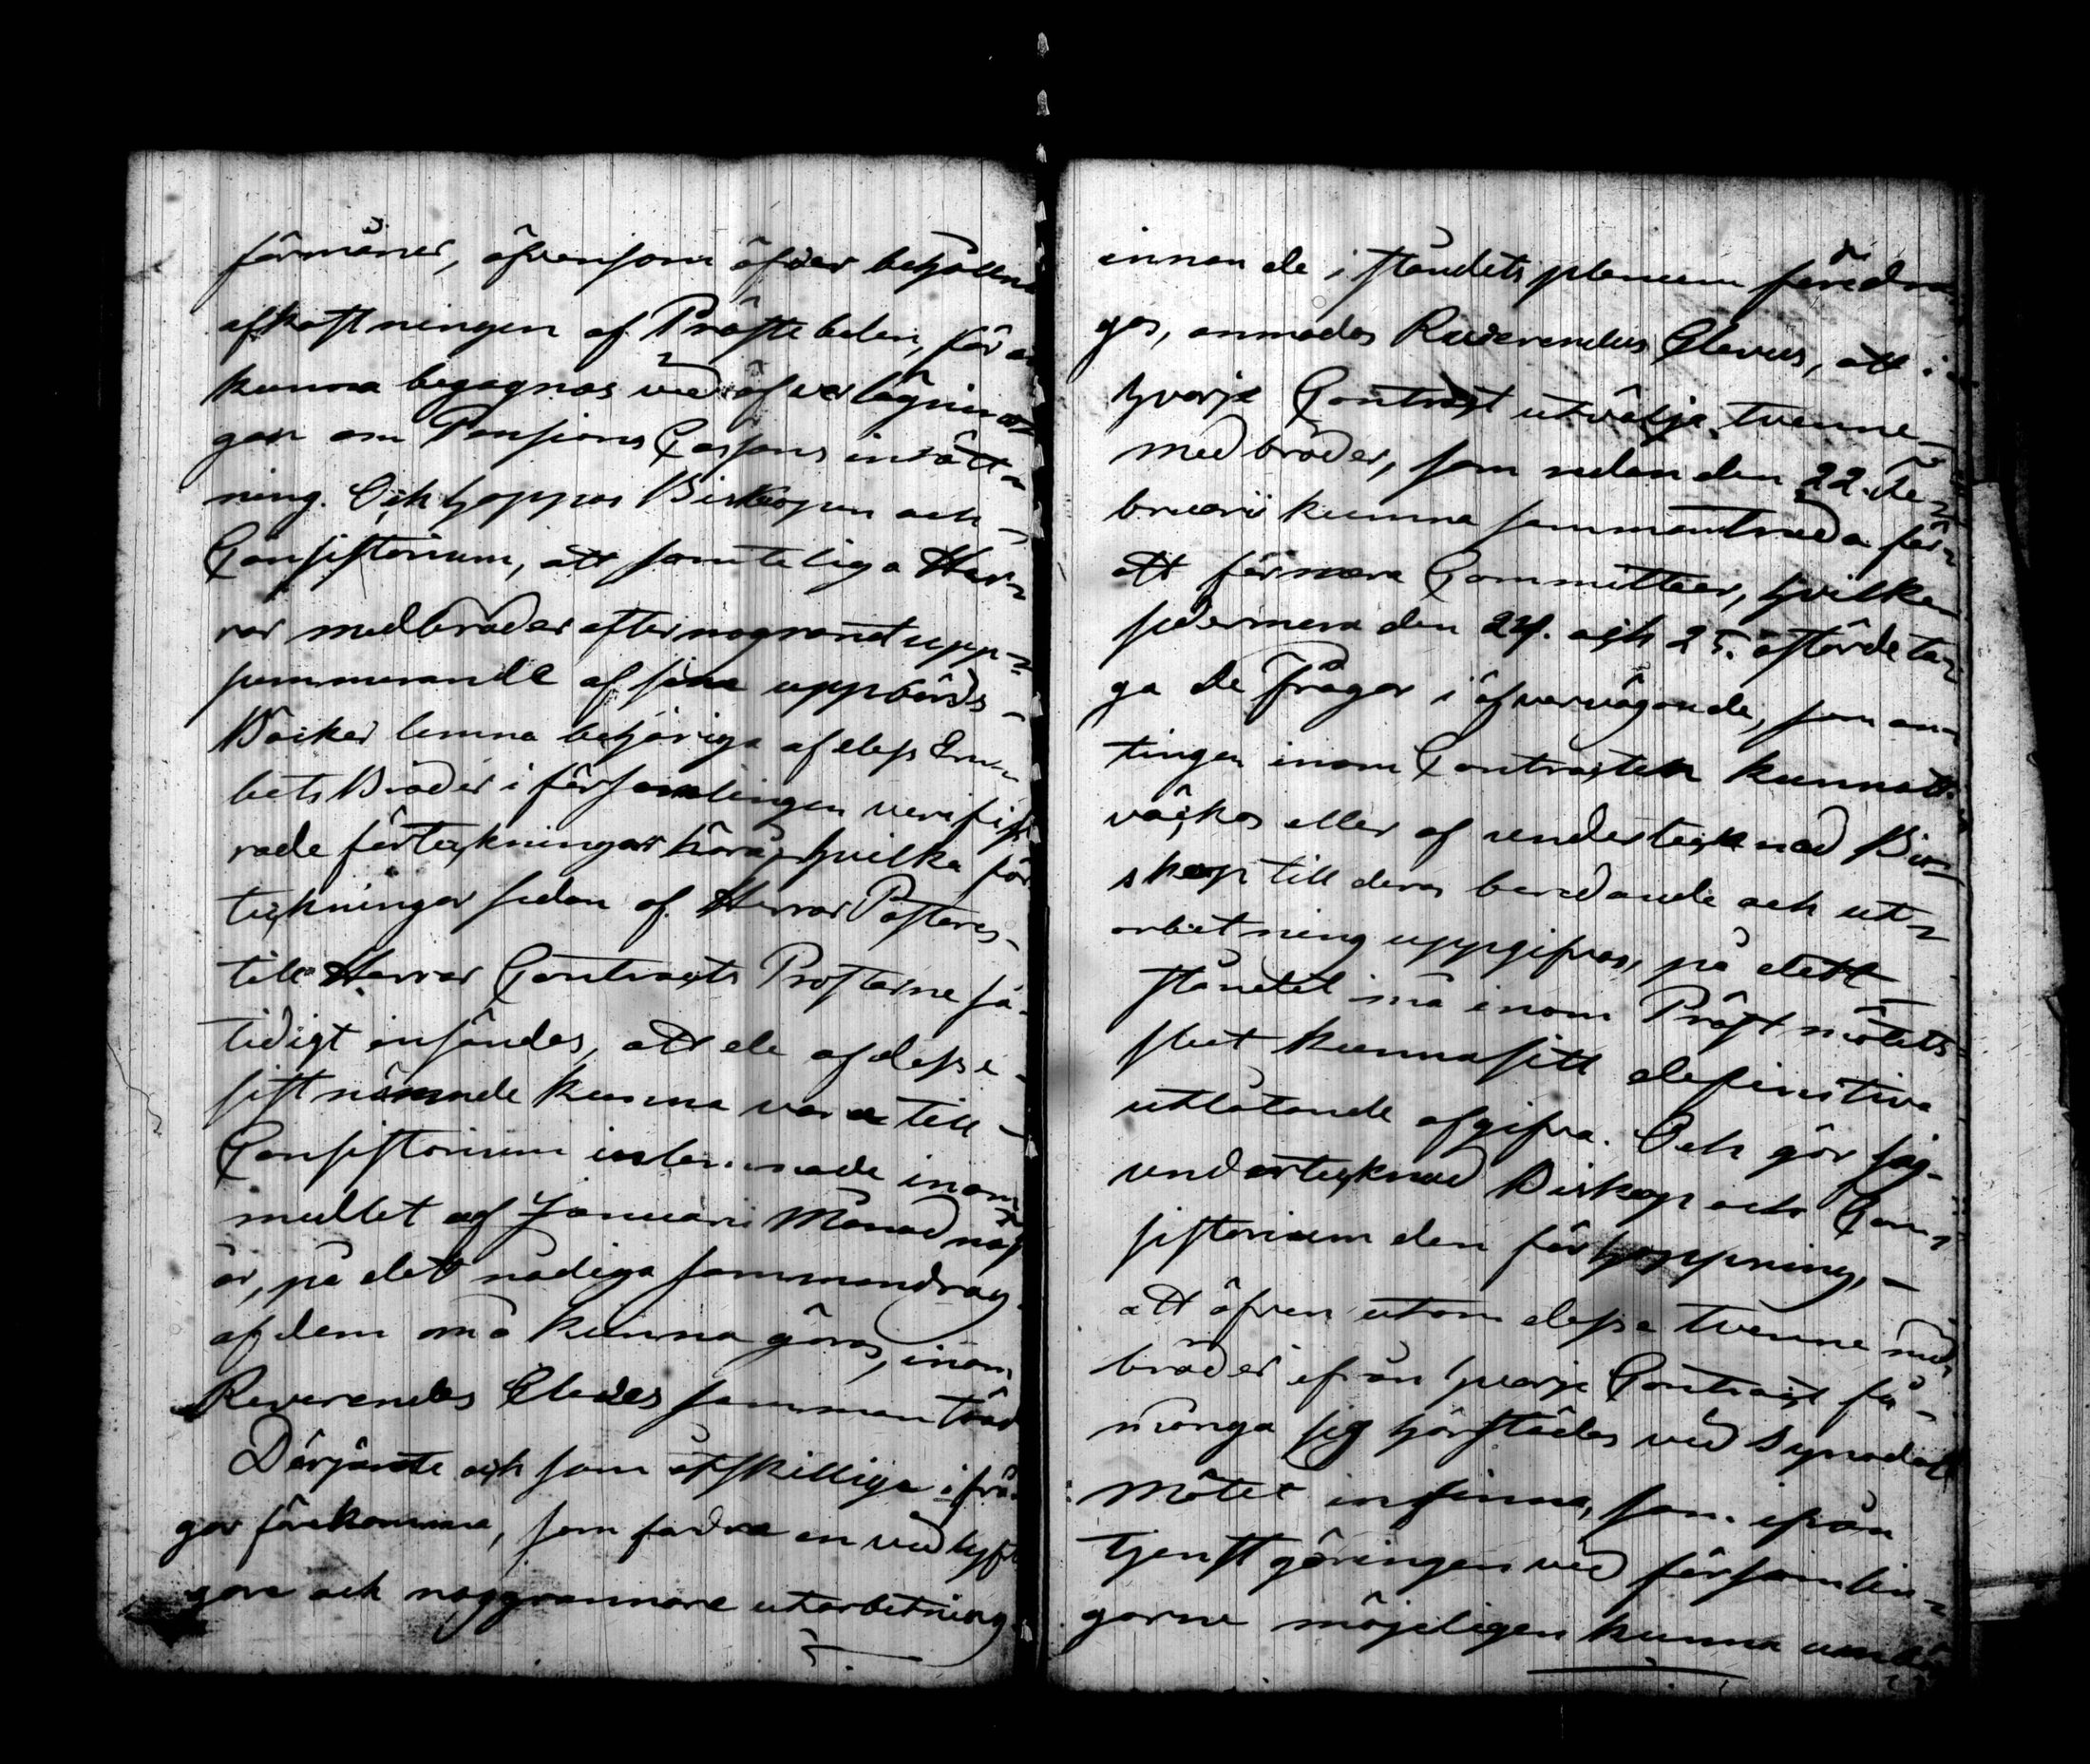 förmåner, äfvensom öfver behållna
afkastningen af Prästebolen, för at
kunna begagnas vid öfverlägninar
gar om Pensions Cassans inrätt-
ning. Och hoppas Biskopen och
Consistorium, att samteliga Her-
rar medbröder efter nogrant upp-
summerande af sina uppbörds-
Böcker lemna behöriga af dess Em-
bets Bröder i församlingen verific-
rade förteckningar härå, hvilka för
teckningar sedan af Herrar Pastores
till Herrar Contracts Prostarne så
tidigt insändas, att de af desse
sistnämnde kunna vara till
Consistorium inlemnade inom
medlet af Januari Månad näst
år, på det nödiga sammandrag
af dem må kunna göras, inom
Reverendus Clerus sammanträd
Därjämte och som åtskilliga i frå-
gor förekomma, som fordra en vidlyft
gare och noggrannare utarbetning
innan de i ståndets plenum föredra-
gas, anmodas Reverendus Clerus, att i
hvarje Contract utvälja tvenne
medbröder, som redan den 22. Fe-
bruarii kunna sammanträda för
att formera Committéer, hvilka
sedermera den 24. och 25. åstörde ta-
ga de frågor i öfvervägande, som an-
tingen inom Contracten kunnat
väckas eller af undertecknad Bi-
skop till deras beredande och ut-
arbetning uppgifvas, på det
ståndet må inom Prästmötets
slut kunna sitt definitiva
utlåtande afgifva. Och gör jag
undertecknad Biskop och Con-
sistorium den förhoppning,
att äfven utom dessa tvenne med
bröder ifrån hvarje Contract så
många sig härstädes vid Synodal
Mötet infinna, som ifrån
tjenstgöringen vid församlin-
garne möjeligen kunna umbä